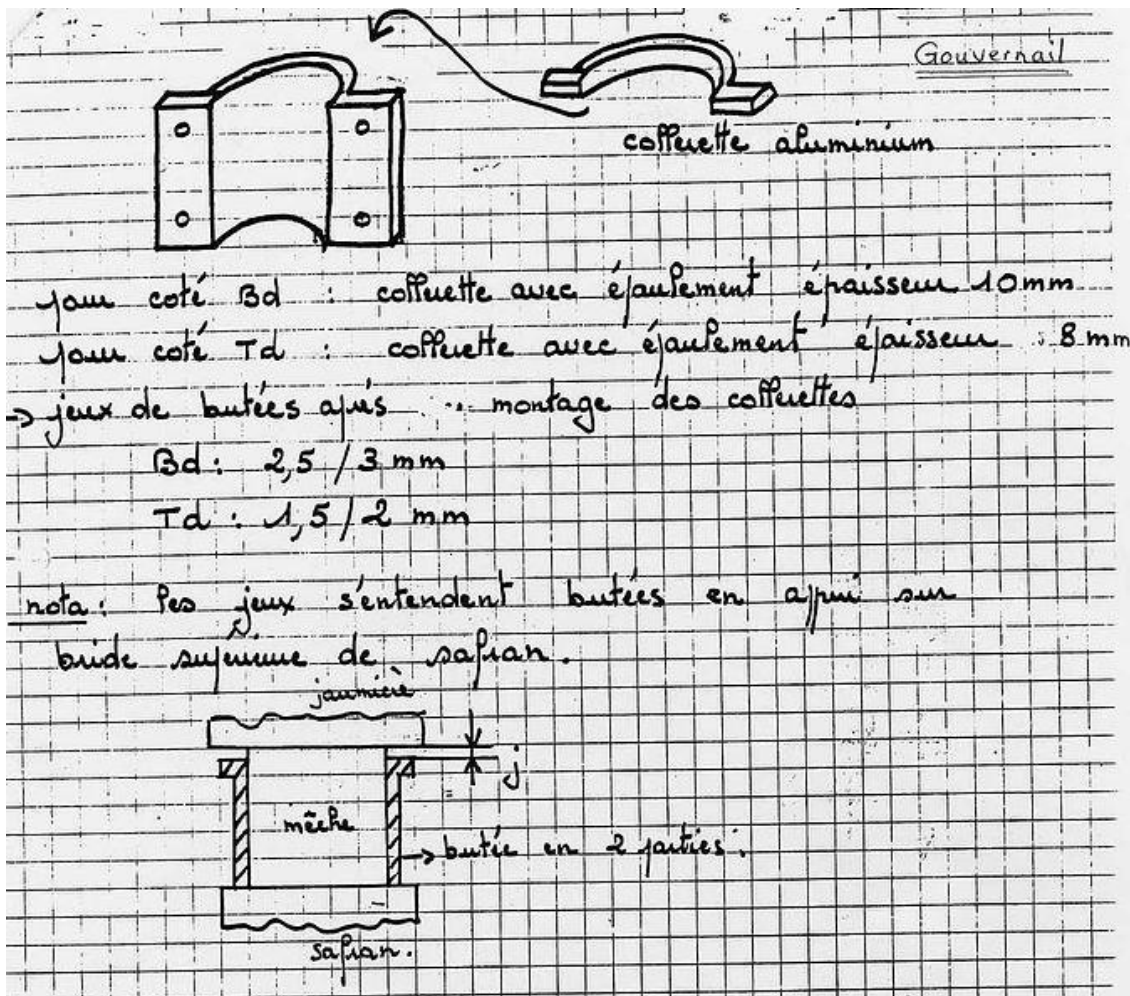 Gouvernail
collerette aluminium
pour coté Bd : collerette avec épaulement épaisseur 10 mm
pour coté Td : collerette avec épaulement épaisseur : 8 mm
→ jeux de butées après montage des collerettes
Bd : 2,5 / 3 mm
Td : 1,5 / 2 mm
nota : les jeux s'entendent butées en appui sur
bride supérieure de safran.
jaumière
j
mêche
→ butée en 2 parties.
safran.